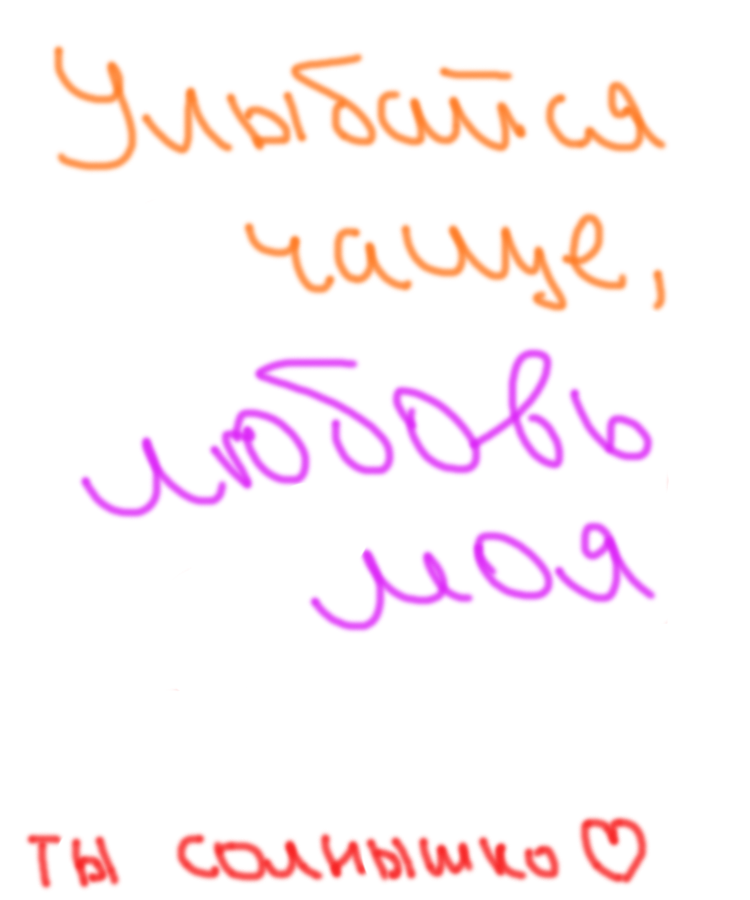 Улыбайся
чаще,
любовь
моя
ты солнышко♡